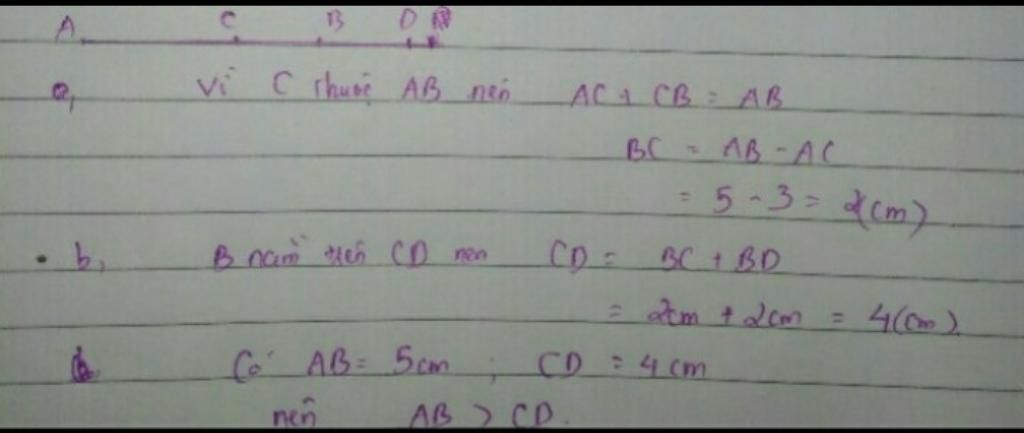 A C B D
a, Vì C thuộc AB nên AC + CB = AB
BC = AB - AC
= 5 - 3 = 2(cm)
b, B nằm trên CD nên CD = BC + BD
= 2cm + 2cm = 4(cm)
Có AB = 5cm ; CD = 4cm
nên AB > CD.